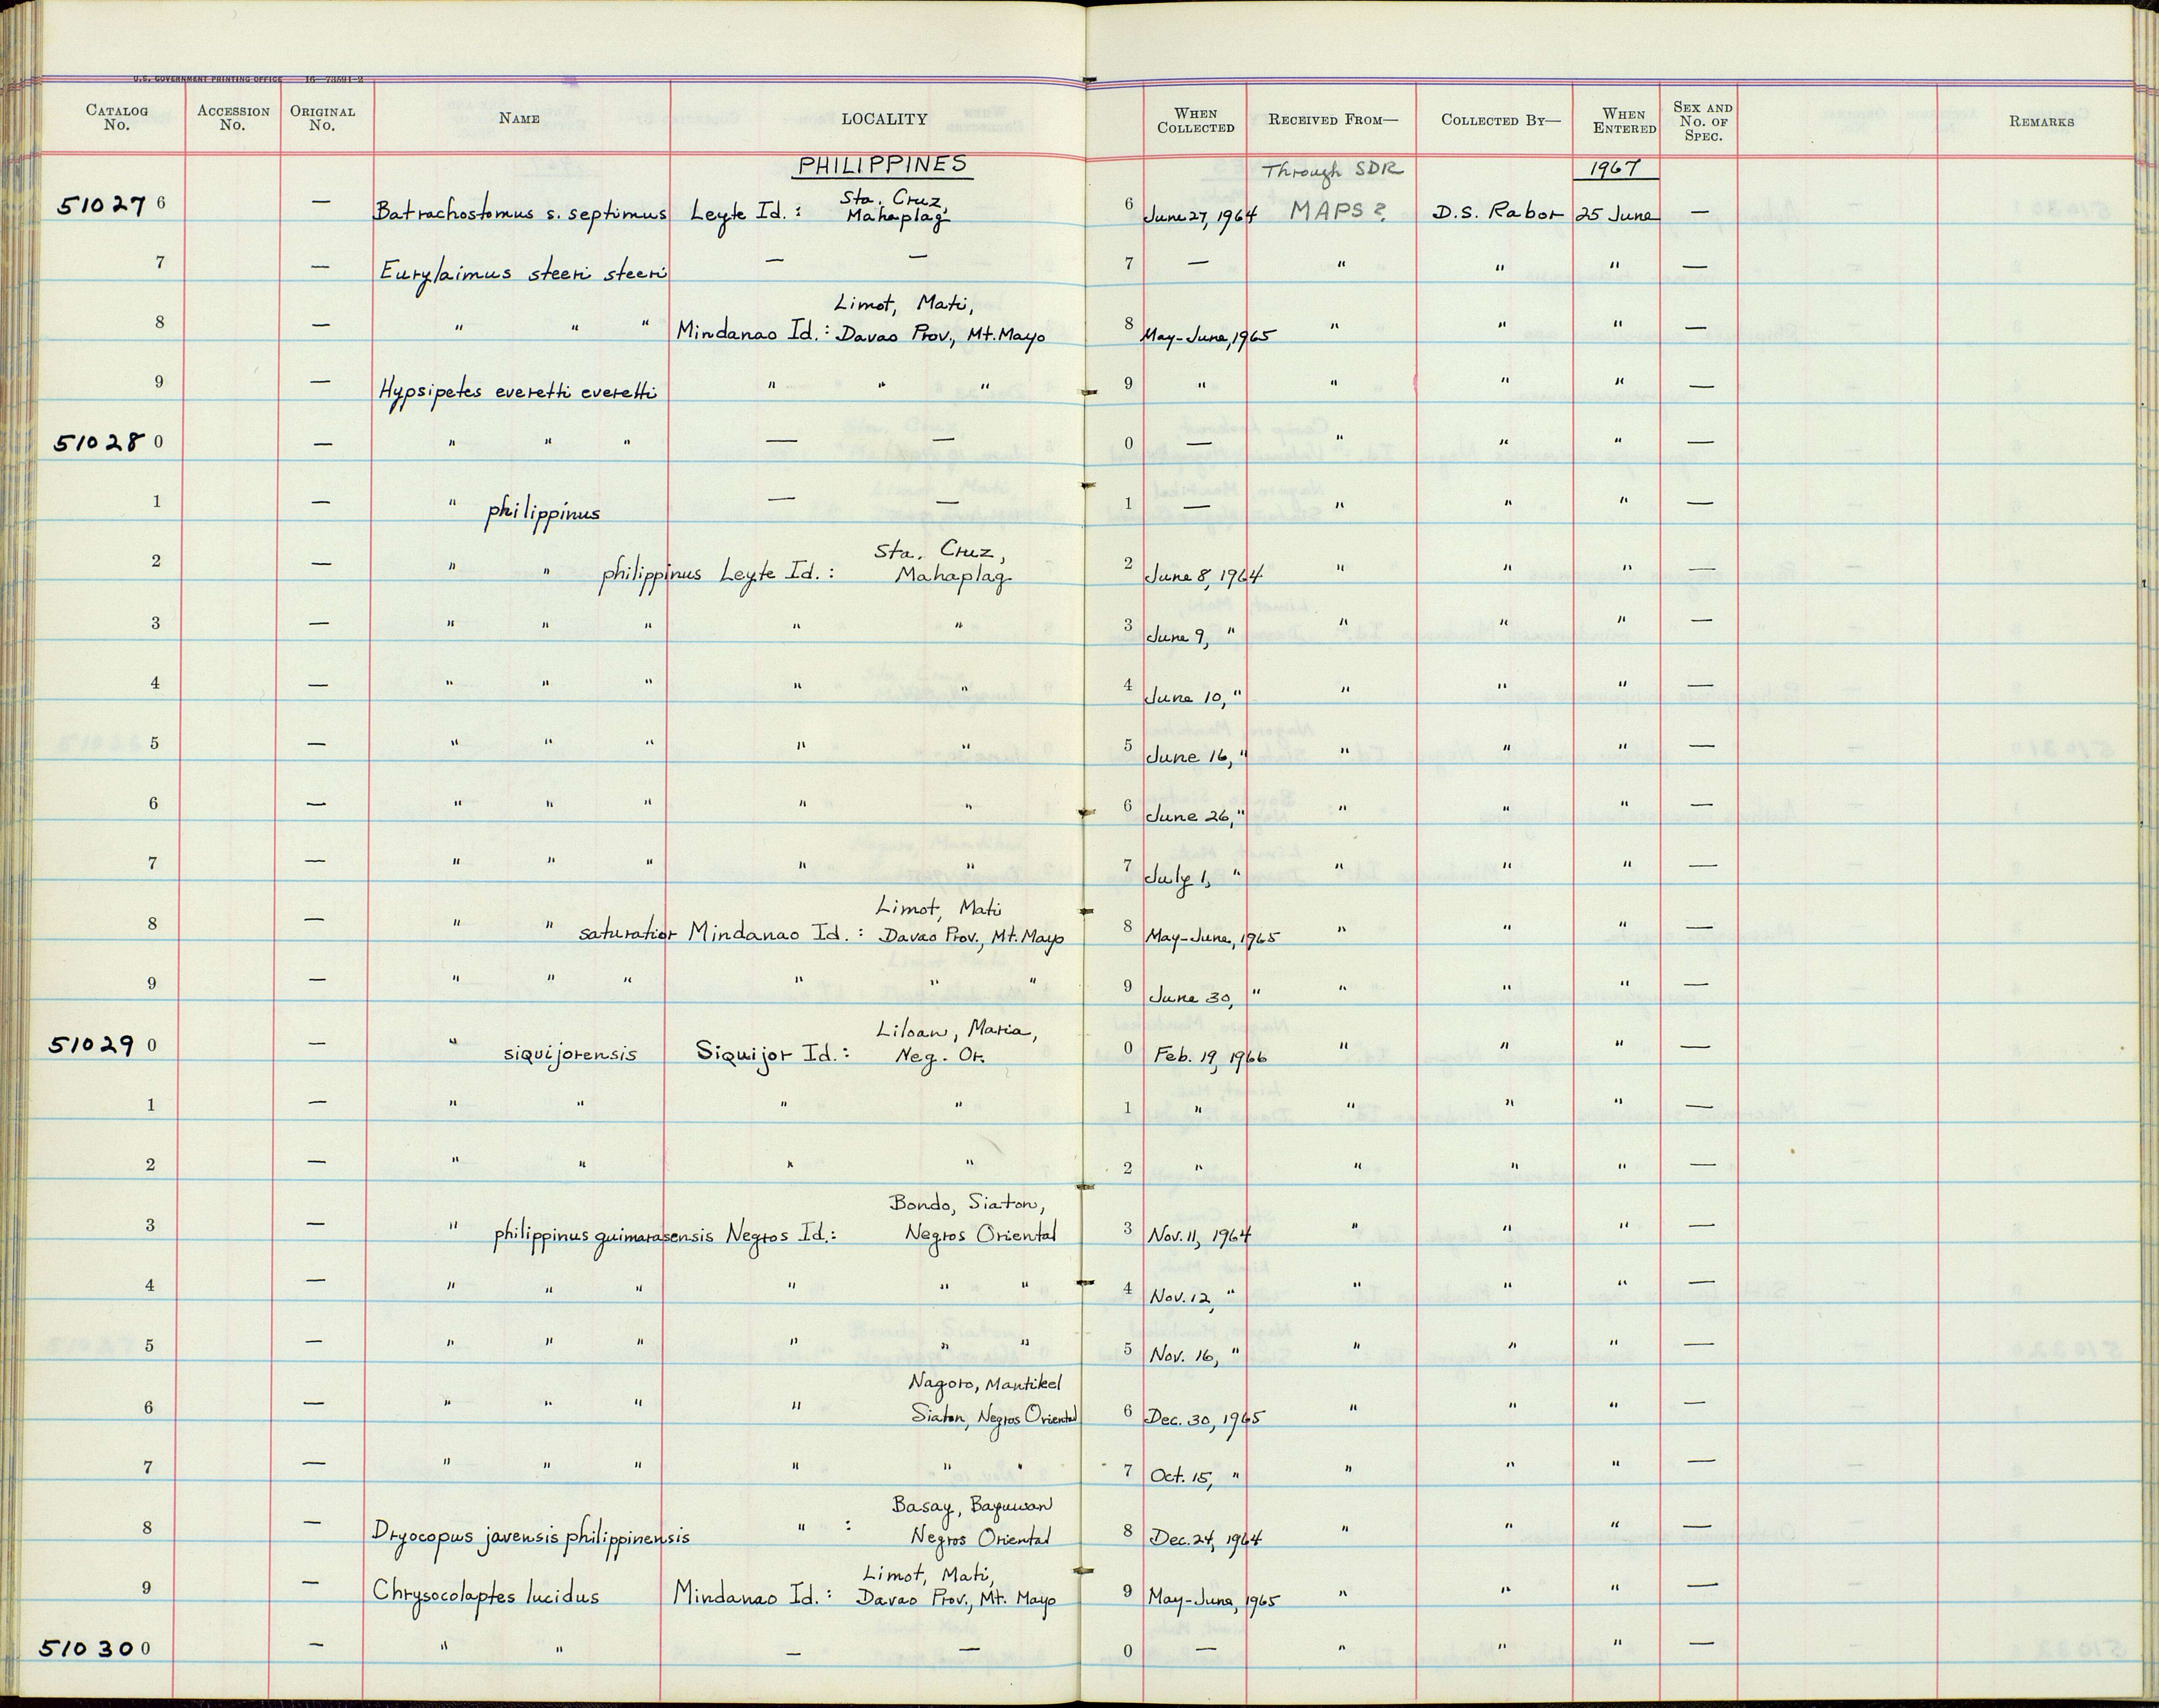 U.S. GOVERNMENT PRINTING OFFICE 16—73591-2
CATALOG No. ACCESSION No. ORIGINAL No. NAME LOCALITY WHEN COLLECTED RECEIVED FROM— COLLECTED BY— WHEN ENTERED SEX AND No. OF SPEC. REMARKS
PHILIPPINES Through SDR 1967
51027 6 — Batrachostomus s. septimus Leyte Id.: Sta. Cruz, Mahaplag 6 June 27, 1964 MAPS? D.S. Rabor 25 June —
7 — Eurylaimus steeri steeri — — 7 — " " " —
8 — " " " Mindanao Id.: Limot, Mati, Davao Prov., Mt. Mayo 8 May-June, 1965 " " " —
9 — Hypsipetes everetti everetti " " " 9 " " " " —
51028 0 — " " " — — 0 — " " " —
1 — " philippinus — — 1 — " " " —
2 — " " philippinus Leyte Id.: Sta. Cruz, Mahaplag 2 June 8, 1964 " " " —
3 — " " " " " 3 June 9, " " " " —
4 — " " " " " 4 June 10, " " " " —
5 — " " " " " 5 June 16, " " " " —
6 — " " " " " 6 June 26, " " " " —
7 — " " " " " 7 July 1, " " " " —
8 — " " saturatior Mindanao Id.: Limot, Mati Davao Prov., Mt. Mayo 8 May-June, 1965 " " " —
9 — " " " " " " 9 June 30, " " " " —
51029 0 — " siquijorensis Siquijor Id.: Liloan, Maria, Neg. Or. 0 Feb. 19, 1966 " " " —
1 — " " " " 1 " " " " —
2 — " " " " 2 " " " " —
3 — " philippinus guimarasensis Negros Id.: Bondo, Siaton, Negros Oriental 3 Nov. 11, 1964 " " " —
4 — " " " " " " 4 Nov. 12, " " " " —
5 — " " " " " " 5 Nov. 16, " " " " —
6 — " " " " Nagoro, Mantikel Siaton, Negros Oriental 6 Dec. 30, 1965 " " " —
7 — " " " " " " 7 Oct. 15, " " " " —
8 — Dryocopus javensis philippinensis " : Basay, Bayawan Negros Oriental 8 Dec. 24, 1964 " " " —
9 — Chrysocolaptes lucidus Mindanao Id.: Limot, Mati, Davao Prov., Mt. Mayo 9 May-June, 1965 " " " —
51030 0 — " " — — 0 — " " " —